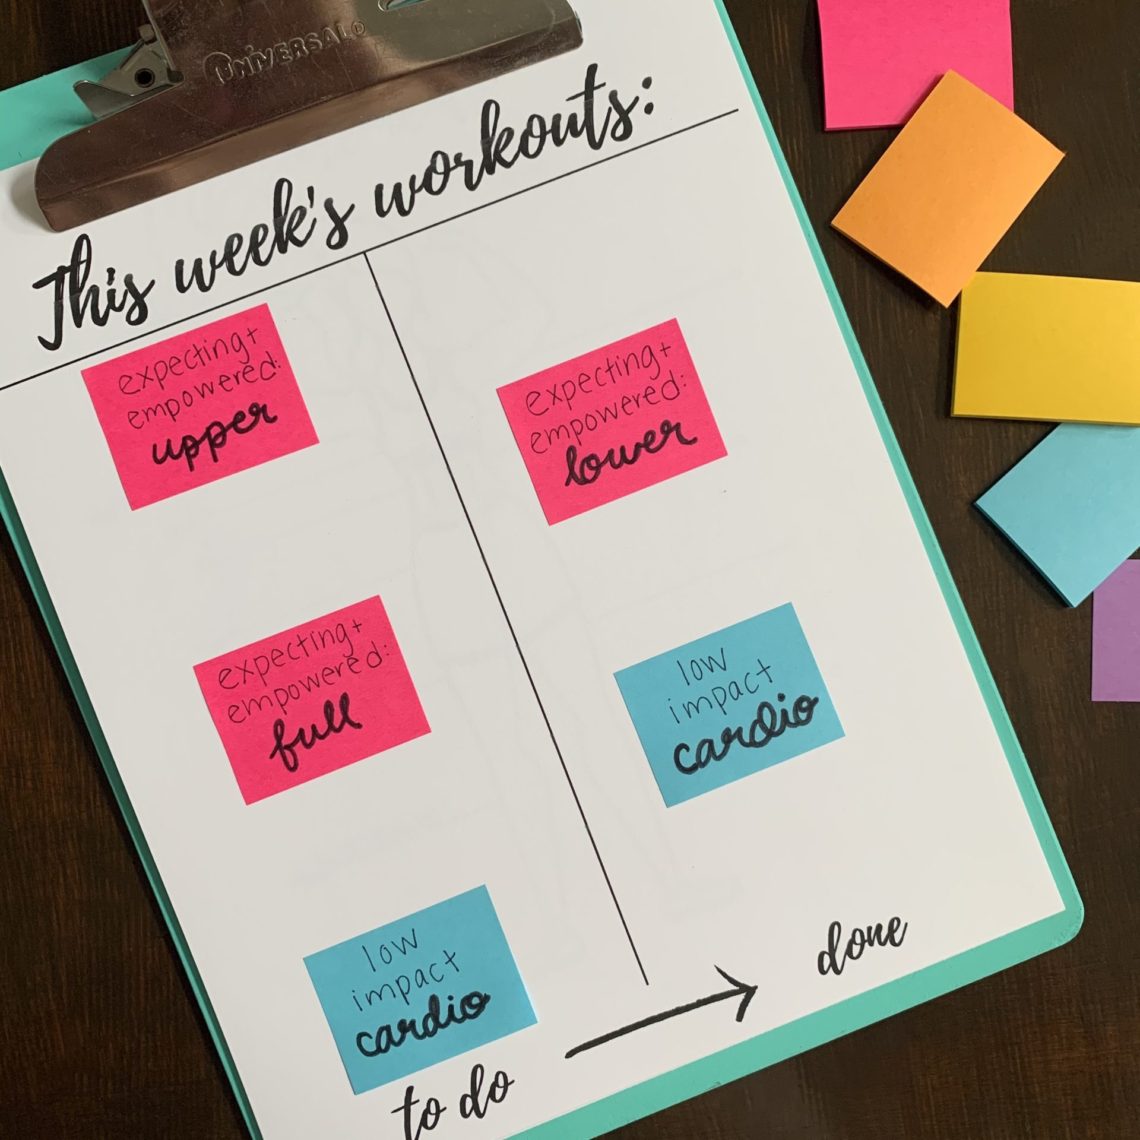 UNIVERSAL
This week's workouts:
expecting+
empowered:
upper
expecting+
empowered:
full
low
impact
cardio
to do
expecting+
empowered:
lower
low
impact
cardio
done